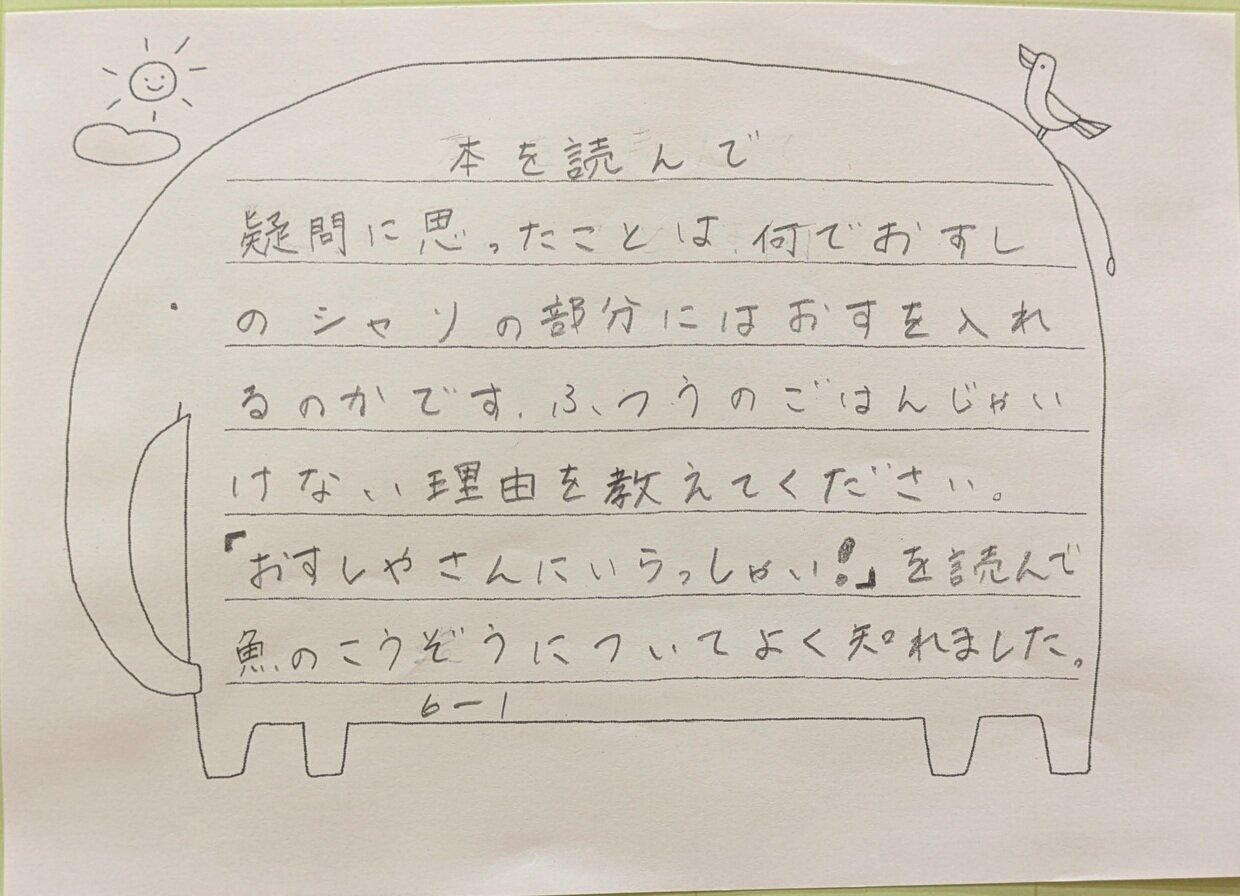 本を読んで
疑問に思ったことは何でおすし
のシャリの部分にはおすを入れ
るのかです.ふつうのごはんじゃい
けない理由を教えてください。
「おすしやさんにいらっしゃい!」を読んで
魚のこうぞうについてよく知れました。
6-1